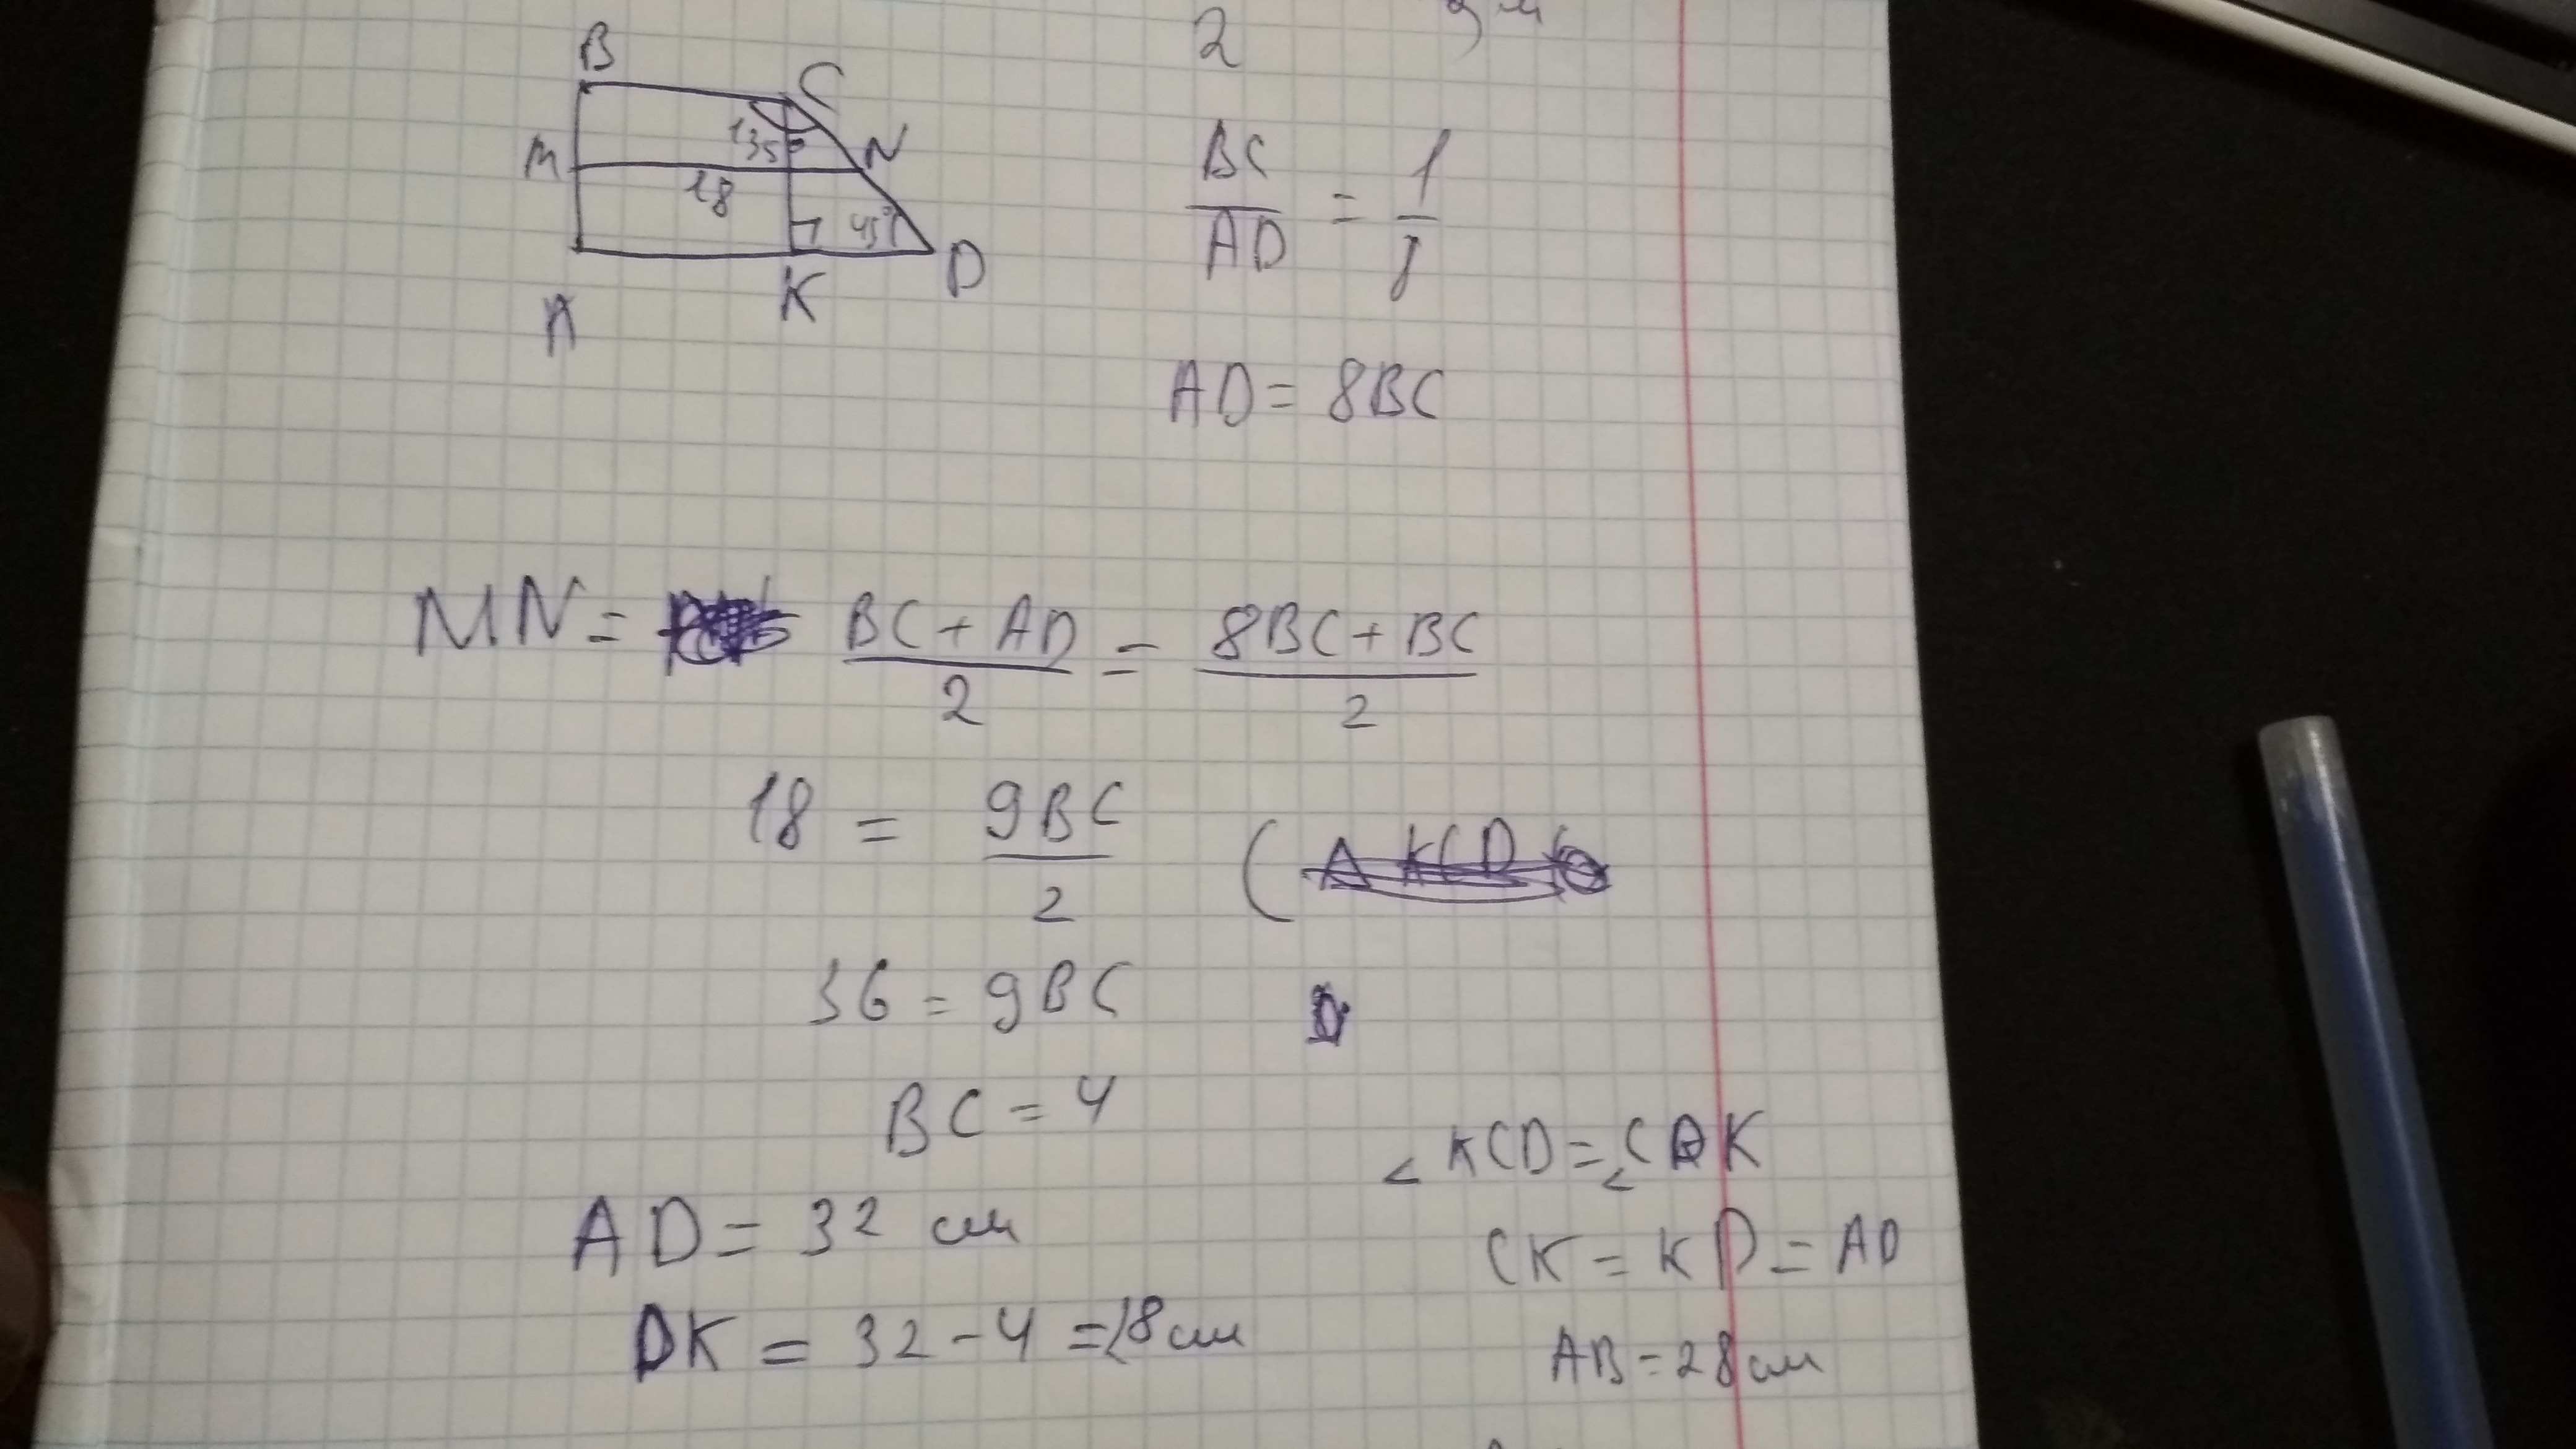 2
B
C
135°
M
N
18
45°
A
K
D
BC/AD = 1/8
AD = 8BC
MN = BC + AD / 2 = 8BC + BC / 2
18 = 9BC / 2
(
36 = 9BC
BC = 4
∠ KCD = ∠ CDK
AD = 32 см
CK = KD = AD
DK = 32 - 4 = 28 см
AB = 28 см